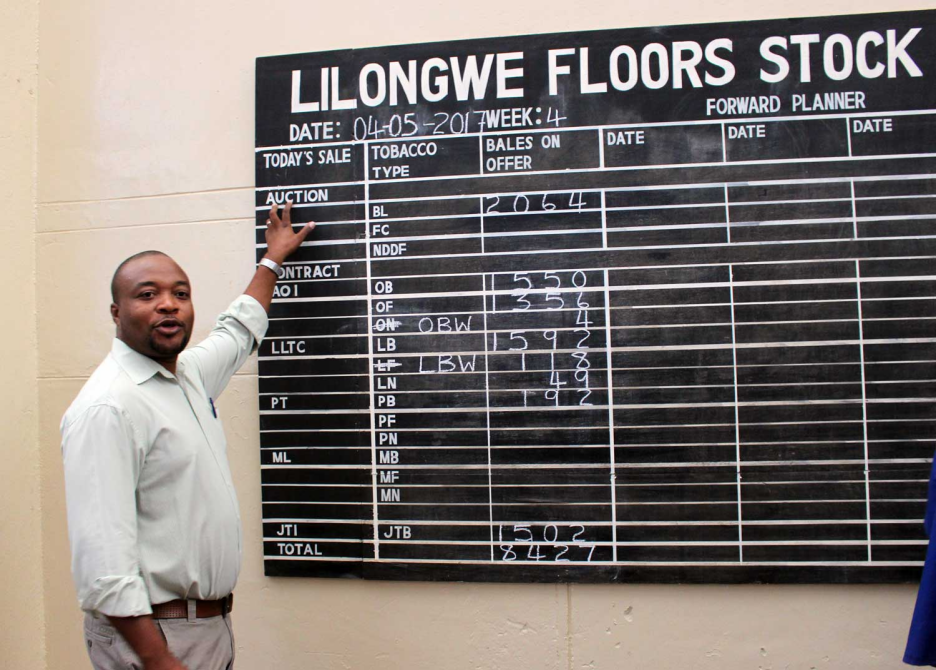 LILONGWE FLOORS STOCK
DATE: 04-05-2017 WEEK: 4 FORWARD PLANNER
TODAY'S SALE TOBACCO TYPE BALES ON OFFER DATE DATE DATE
AUCTION
BL 2064
FC
NDDF
CONTRACT
AOI OB 1550
OF 1356
ON OBW 4
LLTC LB 1592
LF LBW 118
LN 49
PT PB 192
PF
PN
ML MB
MF
MN
JTI JTB 1502
TOTAL 8427